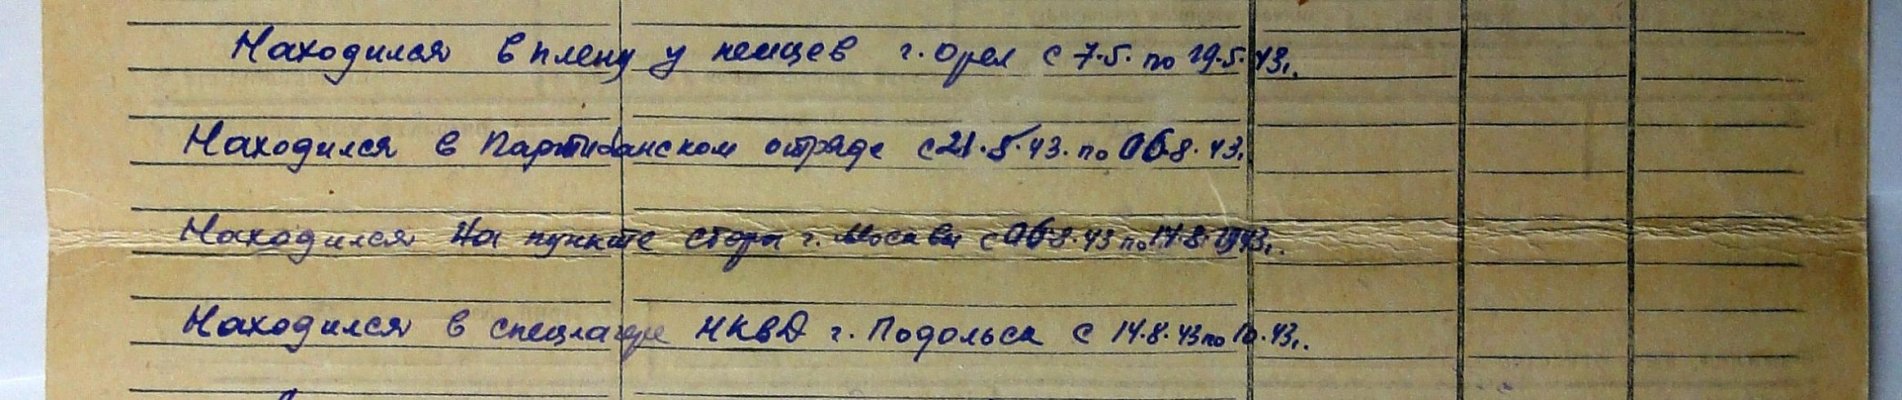 Находился в плену у немцев г. Орел с 7.5. по 19.5.43г.
Находился в Партизанском отряде с 21.5.43. по 06.8.43.
Находился на пункте сбора г. Москвы с 06.8.43 по 14.8.1943г.
Находился в спецлагере НКВД г. Подольск с 14.8.43 по 10.43г.